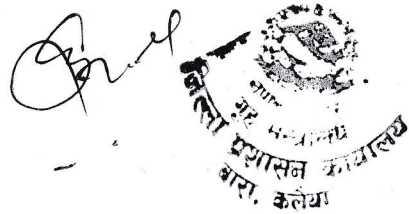 गृह मन्त्रालय
जिल्ला प्रशासन कार्यालय
बारा, कलैया